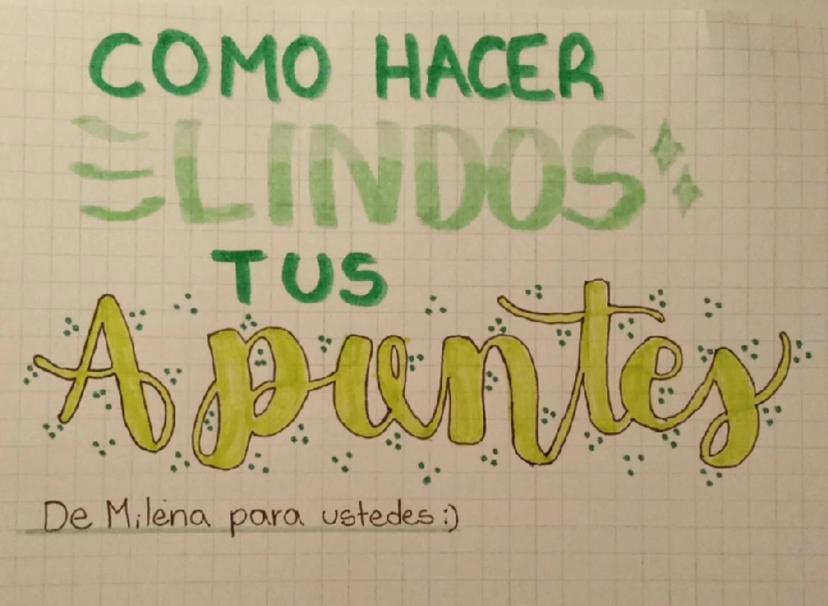 COMO HACER
LINDOS
TUS
Apuntes
De Milena para ustedes :)